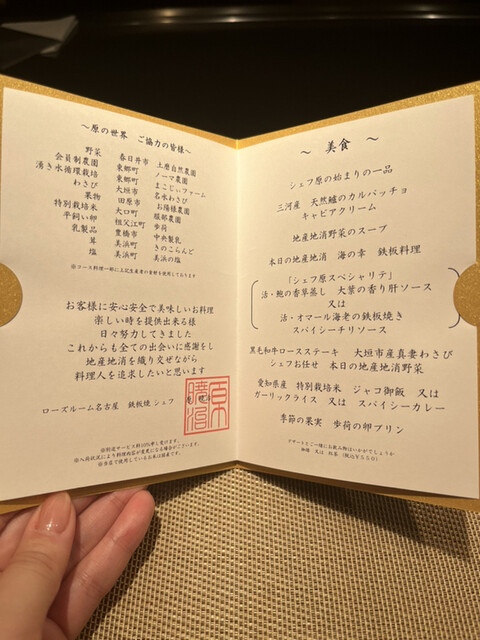 ～原の世界　ご協力の皆様～
野菜　春日井市　上原自然農園
会員制農園　東郷町　ノーマ農園
湧き水循環栽培　東郷町　まこじぃファーム
わさび　大垣市　名水わさび
果物　田原市　お陽様農園
特別栽培米　大口町　服部農園
平飼い卵　祖父江町　歩荷
乳製品　豊橋市　中央製乳
茸　美浜町　きのこらんど
塩　美浜町　美浜の塩
※コース料理一部に上記生産者の食材を使用しております
お客様に安心安全で美味しいお料理
楽しい時を提供出来る様
日々努力してきました
これからも全ての出会いに感謝をし
地産地消を織り交ぜながら
料理人を追求したいと思います
ローズルーム名古屋　鉄板焼 シェフ
※別途サービス料10%申し受けます。
※入荷状況により料理内容が変更になる場合がございます。
※当店で使用しているお米は国産です。
～　美食　～
シェフ原の始まりの一品
三河産　天然鱸のカルパッチョ
キャビアクリーム
地産地消野菜のスープ
本日の地産地消　海の幸　鉄板料理
「シェフ原スペシャリテ」
活・鮑の香草蒸し　大葉の香り肝ソース
又は
活・オマール海老の鉄板焼き
スパイシーチリソース
黒毛和牛ロースステーキ　大垣市産真妻わさび
シェフお任せ　本日の地産地消野菜
愛知県産　特別栽培米　ジャコ御飯　又は
ガーリックライス　又は　スパイシーカレー
季節の果実　歩荷の卵プリン
デザートとご一緒にお飲み物はいかがでしょうか
珈琲　又は　紅茶　（税込￥５５０）